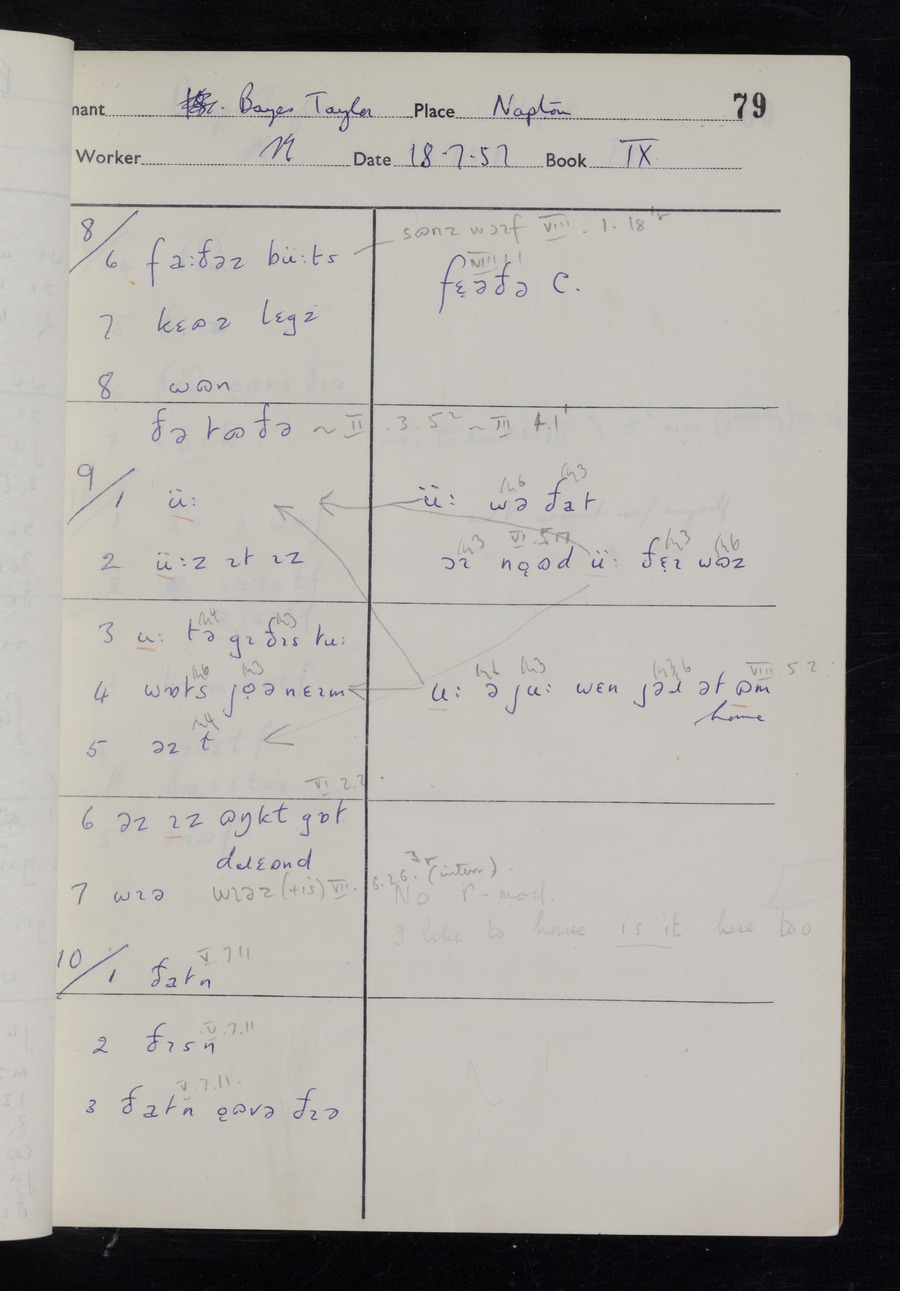 nant Bayes Taylor Place Napton 79
Worker N Date 18·7·57 Book IX
8/6 fa:ðəz bü:ts
sɷnz wɔɪf VIII . 1 . 18
VIII 1.1
fɛ̣əðə C.
7 kɛɷz lɛgz
8 wɷn
ðə tɷðə ~ II . 3 . 5² ~ III . 4.1
9/1 ü:
ü: wə ðat
2 ü:z ɪt ɪz
əɪ nọɷd ü: ðẹɪ wɷz
3 u: tə gɪ ðɪs tu:
4 wɒts jọənɛɪm
u: ə ju: wɛn jəɹ ət ɷm VIII . 5 2 .
home
5 əz t
VI . 2.2 .
6 əz ɪz ɷŋkt gɒt
dɹɛɷnd
7 wɪə wɪəz (+is) VII . 6.26. (interr).
No r-mod.
I like to house is it here too
10/1 ðatn̩ V . 7 11
2 ðɪsn̩ V . 7 . 11
3 ðatn̩ ọɷvə ðɪə V . 7 . 11 .